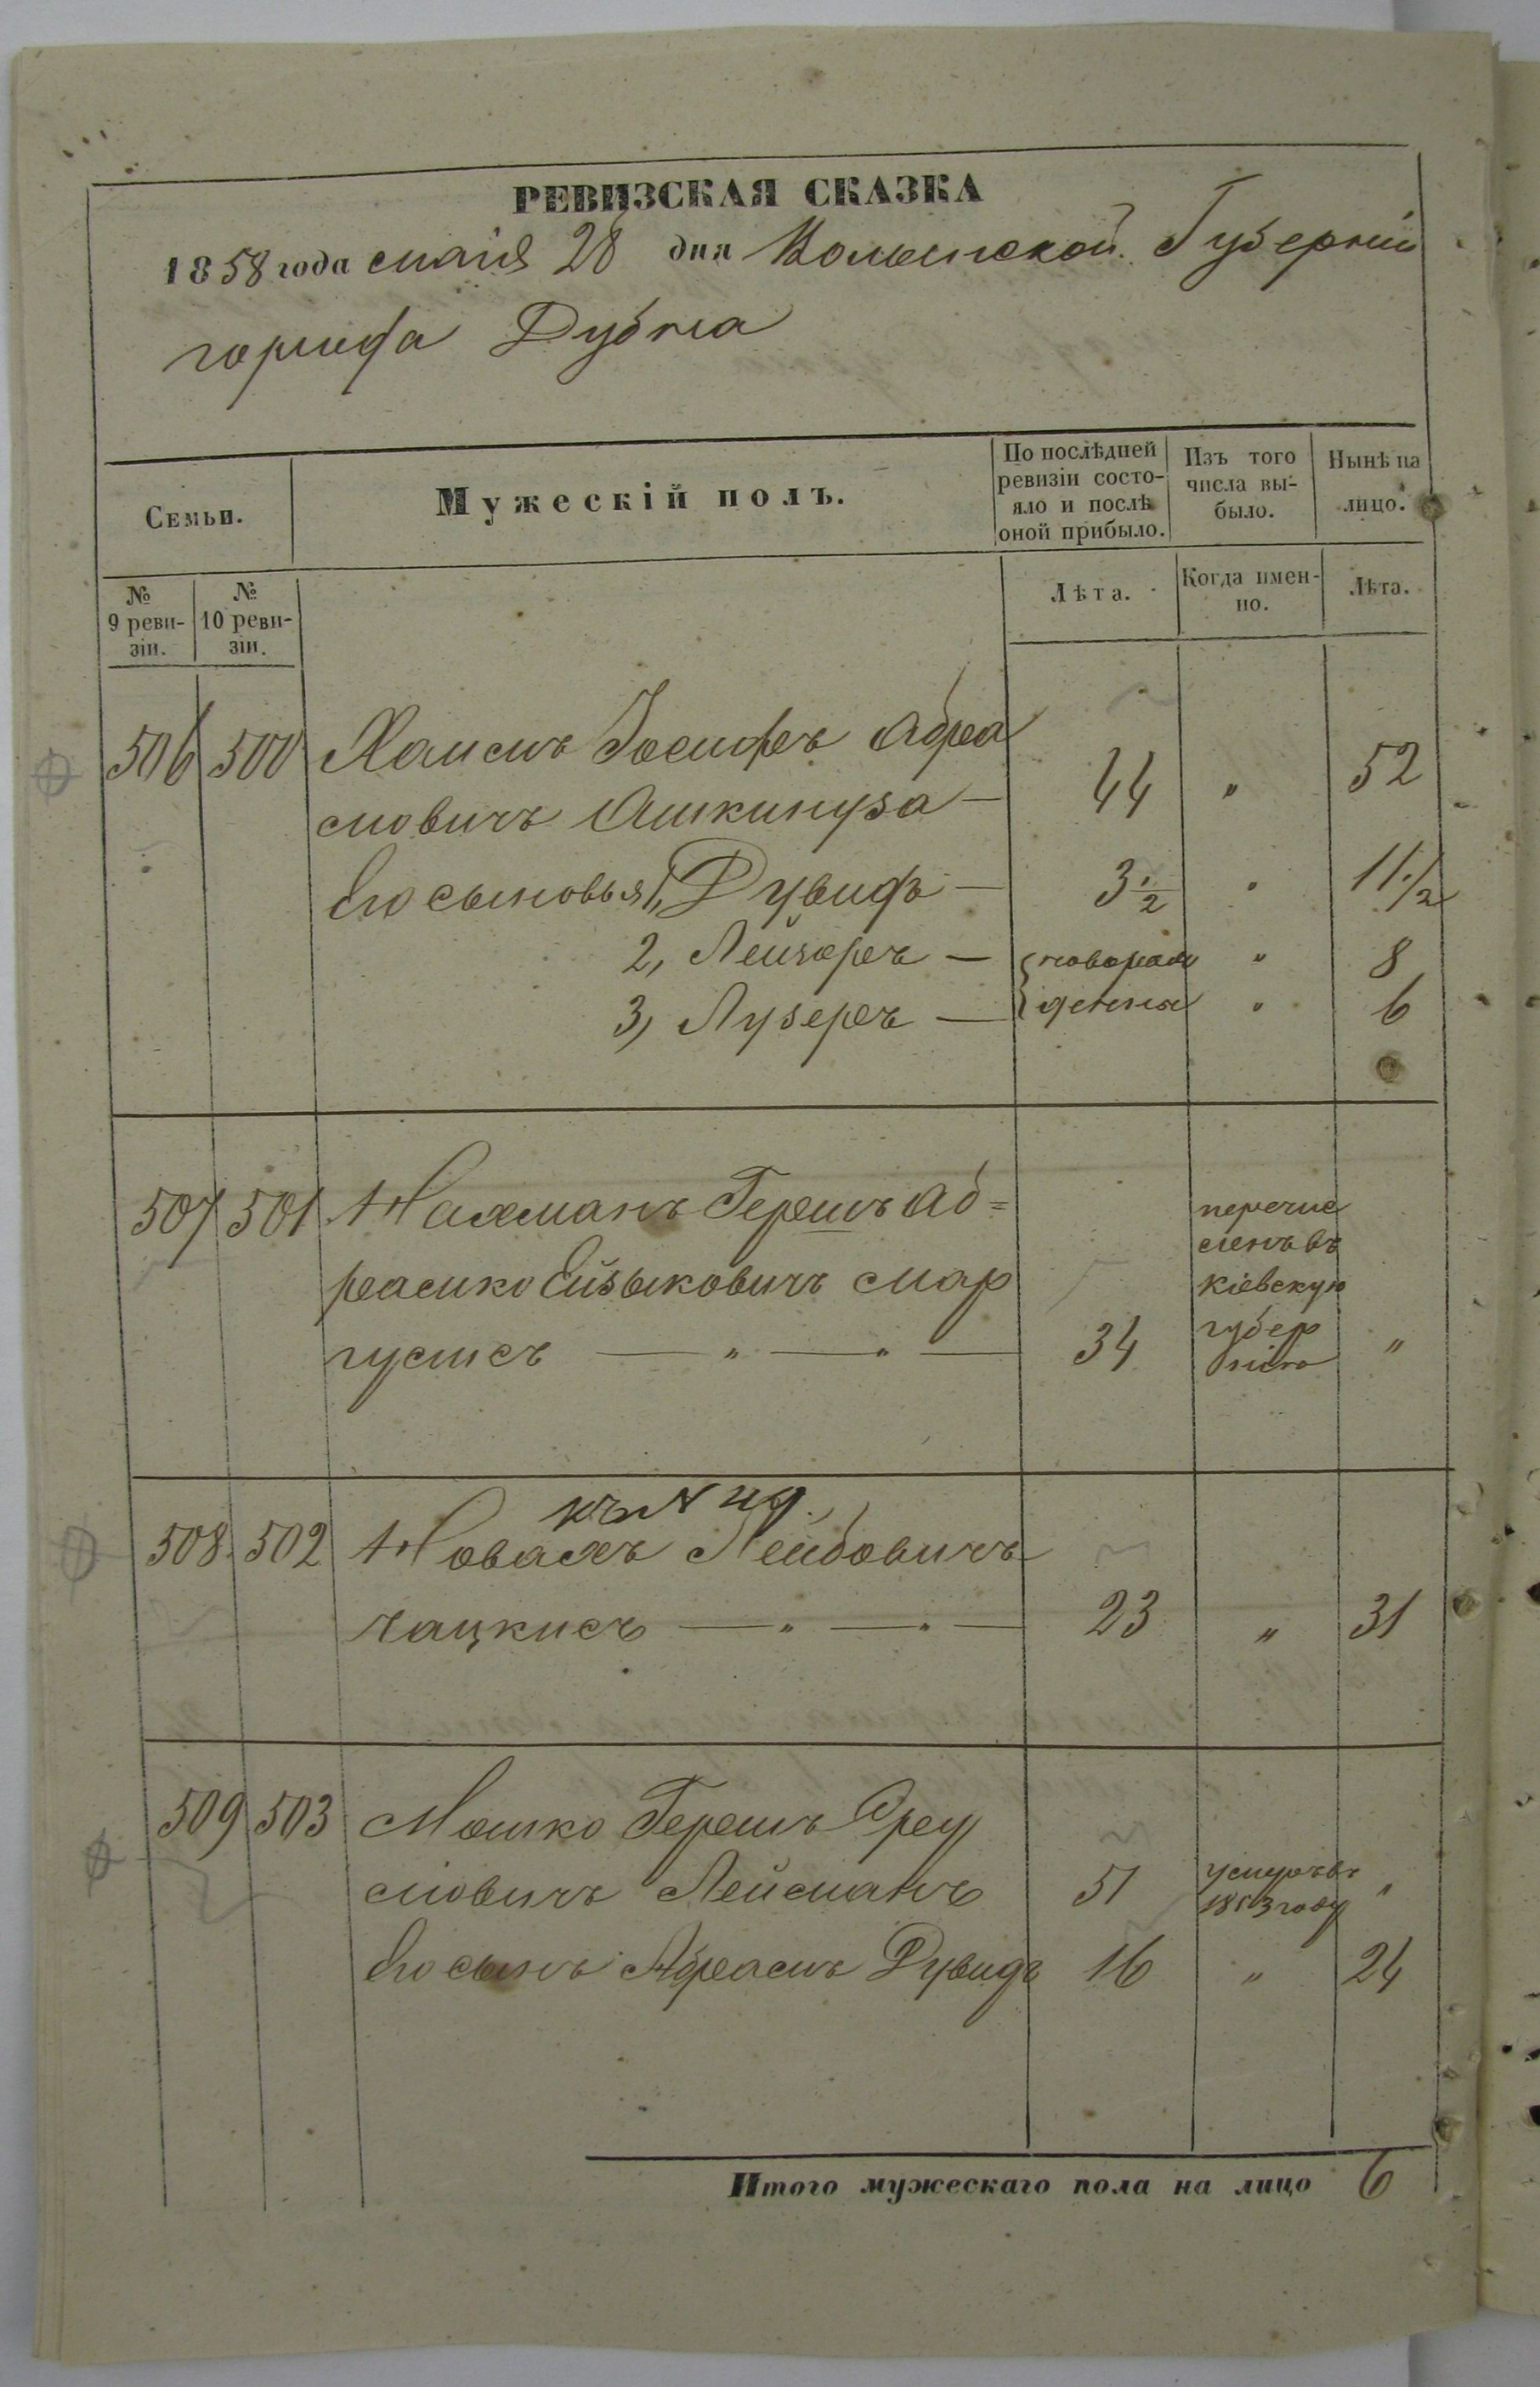 РЕВИЗСКАЯ СКАЗКА
1858 года маія 28 дня Волынской Губерніи
города Дубна
Семьи.
Мужескій полъ.
По послѣдней ревизіи состояло и послѣ оной прибыло.
Изъ того числа выбыло.
Нынѣ на лицо.
№ 9 ревизіи.
№ 10 ревизіи.
Лѣта.
Когда именно.
Лѣта.
506 500 Хаимъ Іосифъ Абра
мовичъ Ашкинуза — 44 " 52
Его сыновья 1, Дувидъ — 3 1/2 " 11 1/2
2, Лейзоръ — новорож " 8
3, Лузеръ — денны " 6
507 501 Нахманъ Гершъ Аб=
рамко Ейзыковичъ Мар
гулисъ — " — " — 34 перечис
ленъ въ
Кіевскую
губер
нію "
къ № 49.
508 502 Новахъ Лейбовичъ
Чацкисъ — " — " — 23 " 31
509 503 Мошко Гершъ Сру
ловичъ Лейсманъ 51 умеръ въ
1853 году "
Его сынъ Абрамъ Дувидъ 16 " 24
Итого мужескаго пола на лицо 6